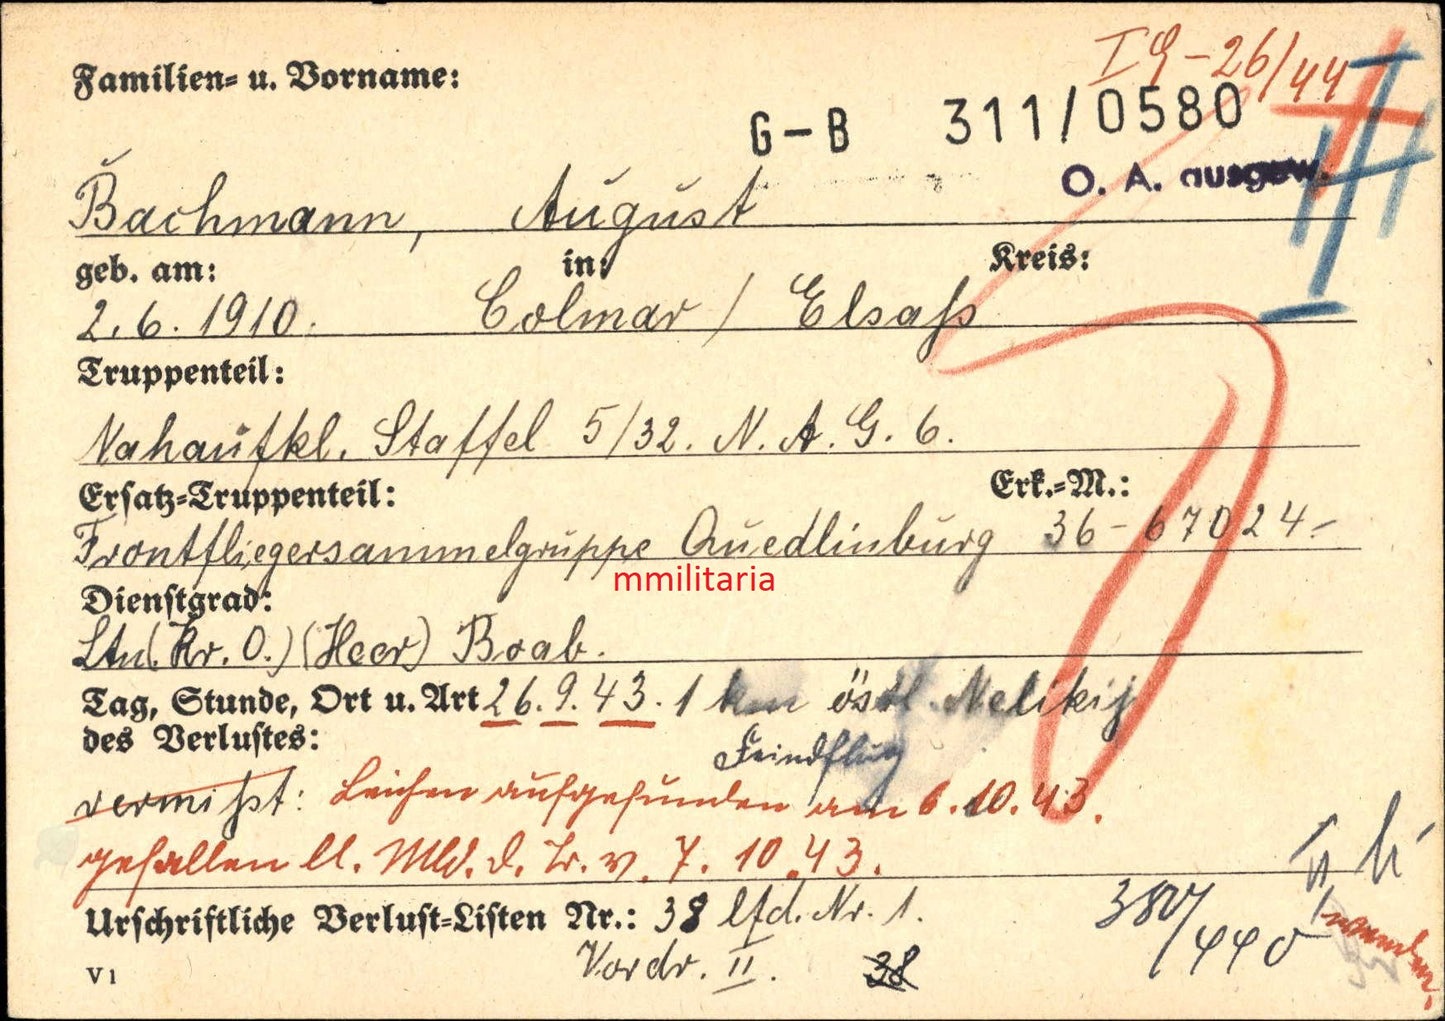 Familien- u. Vorname:
I G - 26/44
G-B 311/0580
O. A. ausgew.
Bachmann, August
geb. am: in: Kreis:
2.6.1910. Colmar / Elsaß
Truppenteil:
Nahaufkl. Staffel 5/32. N. A. G. 6.
Ersatz-Truppenteil: Erk.-M.:
Frontfliegersammelgruppe Quedlinburg 36-67024-
mmilitaria
Dienstgrad:
Ltn. (Kr. O.) (Heer) Boab.
Tag, Stunde, Ort u. Art 26.9.43. 1 km östl. Melikij
des Verlustes: Feindflug
vermißt: Leichen aufgefunden am 6.10.43.
gefallen lt. Mld. d. Tr. v. 7.10.43.
Urschriftliche Verlust-Listen Nr.: 38 lfd. Nr. 1.
Vordr. II. 38
380/440
wenden.
V1